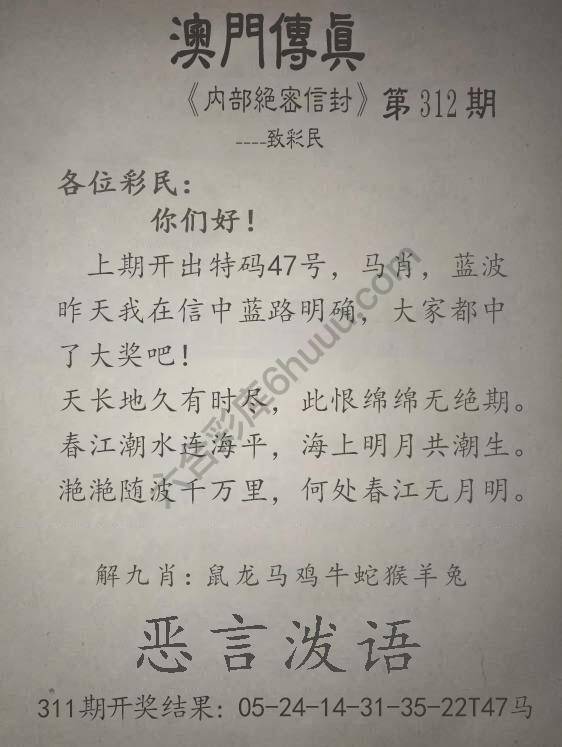 澳門傳眞
《内部絕密信封》第312期
----致彩民
各位彩民：
你们好！
上期开出特码47号，马肖，蓝波
昨天我在信中蓝路明确，大家都中
了大奖吧！
天长地久有时尽，此恨绵绵无绝期。
春江潮水连海平，海上明月共潮生。
滟滟随波千万里，何处春江无月明。
六合彩库6huuu.com
解九肖：鼠龙马鸡牛蛇猴羊兔
恶言泼语
311期开奖结果：05-24-14-31-35-22T47马